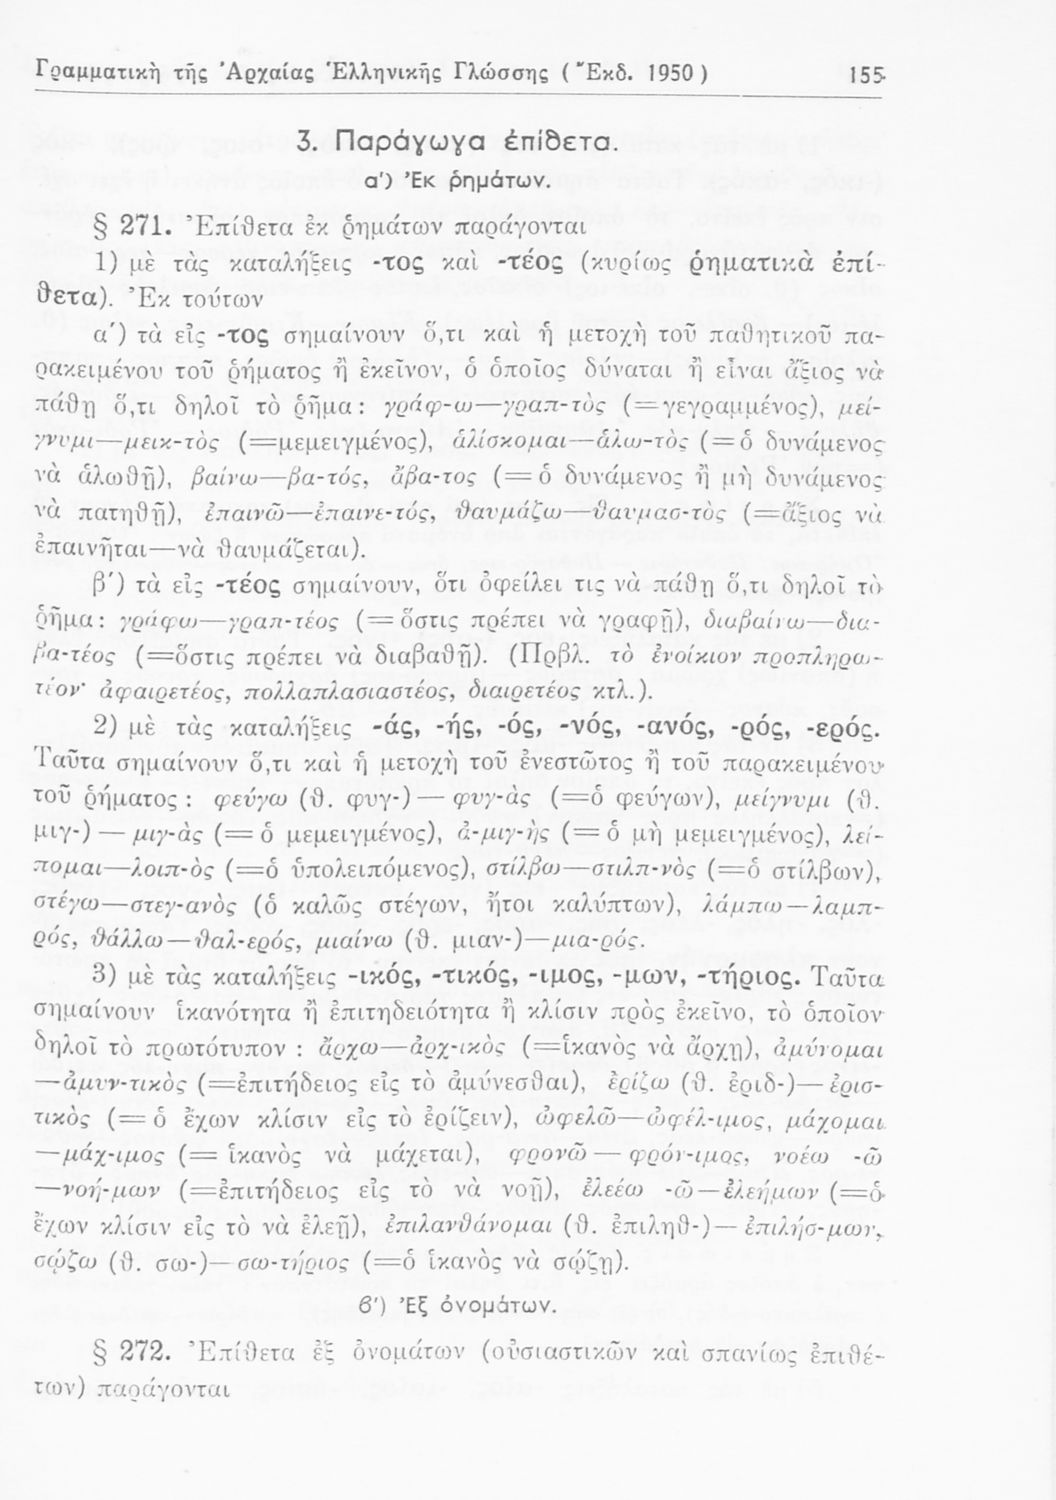 Γραμματικὴ τῆς Ἀρχαίας Ἑλληνικῆς Γλώσσης (Ἔκδ. 1950) 155
3. Παράγωγα ἐπίθετα.
α') Ἐκ ῥημάτων.
§ 271. Ἐπίθετα ἐκ ῥημάτων παράγονται
1) μὲ τὰς καταλήξεις -τος καὶ -τέος (κυρίως ῥηματικὰ ἐπί-
θετα). Ἐκ τούτων
α') τὰ εἰς -τος σημαίνουν ὅ,τι καὶ ἡ μετοχὴ τοῦ παθητικοῦ πα-
ρακειμένου τοῦ ῥήματος ἢ ἐκεῖνον, ὁ ὁποῖος δύναται ἢ εἶναι ἄξιος νὰ
πάθῃ ὅ,τι δηλοῖ τὸ ῥῆμα: γράφ-ω—γραπ-τὸς (=γεγραμμένος), μεί-
γνυμι—μεικ-τὸς (=μεμειγμένος), ἁλίσκομαι—ἁλω-τὸς (=ὁ δυνάμενος
νὰ ἁλωθῇ), βαίνω—βα-τός, ἄβα-τος (=ὁ δυνάμενος ἢ μὴ δυνάμενος
νὰ πατηθῇ), ἐπαινῶ—ἐπαινε-τός, θαυμάζω—θαυμασ-τὸς (=ἄξιος νὰ
ἐπαινῆται—νὰ θαυμάζεται).
β') τὰ εἰς -τέος σημαίνουν, ὅτι ὀφείλει τις νὰ πάθῃ ὅ,τι δηλοῖ τὸ
ῥῆμα: γράφω—γραπ-τέος (=ὅστις πρέπει νὰ γραφῇ), διαβαίνω—δια-
βα-τέος (=ὅστις πρέπει νὰ διαβαθῇ). (Πρβλ. τὸ ἐνοίκιον προπληρω-
τέον· ἀφαιρετέος, πολλαπλασιαστέος, διαιρετέος κτλ.).
2) μὲ τὰς καταλήξεις -άς, -ής, -ός, -νός, -ανός, -ρός, -ερός.
Ταῦτα σημαίνουν ὅ,τι καὶ ἡ μετοχὴ τοῦ ἐνεστῶτος ἢ τοῦ παρακειμένου
τοῦ ῥήματος : φεύγω (θ. φυγ-) — φυγ-ὰς (=ὁ φεύγων), μείγνυμι (θ.
μιγ-) — μιγ-ὰς (= ὁ μεμειγμένος), ἀ-μιγ-ὴς (= ὁ μὴ μεμειγμένος), λεί-
πομαι—λοιπ-ὸς (=ὁ ὑπολειπόμενος), στίλβω—στιλπ-νὸς (=ὁ στίλβων),
στέγω—στεγ-ανὸς (ὁ καλῶς στέγων, ἤτοι καλύπτων), λάμπω—λαμπ-
ρός, θάλλω—θαλ-ερός, μιαίνω (θ. μιαν-)—μια-ρός.
3) μὲ τὰς καταλήξεις -ικός, -τικός, -ιμος, -μων, -τήριος. Ταῦτα
σημαίνουν ἱκανότητα ἢ ἐπιτηδειότητα ἢ κλίσιν πρὸς ἐκεῖνο, τὸ ὁποῖον
δηλοῖ τὸ πρωτότυπον : ἄρχω—ἀρχ-ικὸς (=ἱκανὸς νὰ ἄρχῃ), ἀμύνομαι
—ἀμυν-τικὸς (=ἐπιτήδειος εἰς τὸ ἀμύνεσθαι), ἐρίζω (θ. ἐριδ-)—ἐρισ-
τικὸς (= ὁ ἔχων κλίσιν εἰς τὸ ἐρίζειν), ὠφελῶ—ὠφέλ-ιμος, μάχομαι
—μάχ-ιμος (= ἱκανὸς νὰ μάχεται), φρονῶ — φρόν-ιμος, νοέω -ῶ
—νοή-μων (=ἐπιτήδειος εἰς τὸ νὰ νοῇ), ἐλεέω -ῶ—ἐλεήμων (=ὁ
ἔχων κλίσιν εἰς τὸ νὰ ἐλεῇ), ἐπιλανθάνομαι (θ. ἐπιληθ-)— ἐπιλήσ-μων,
σῴζω (θ. σω-)—σω-τήριος (=ὁ ἱκανὸς νὰ σῴζῃ).
β') Ἐξ ὀνομάτων.
§ 272. Ἐπίθετα ἐξ ὀνομάτων (οὐσιαστικῶν καὶ σπανίως ἐπιθέ-
των) παράγονται